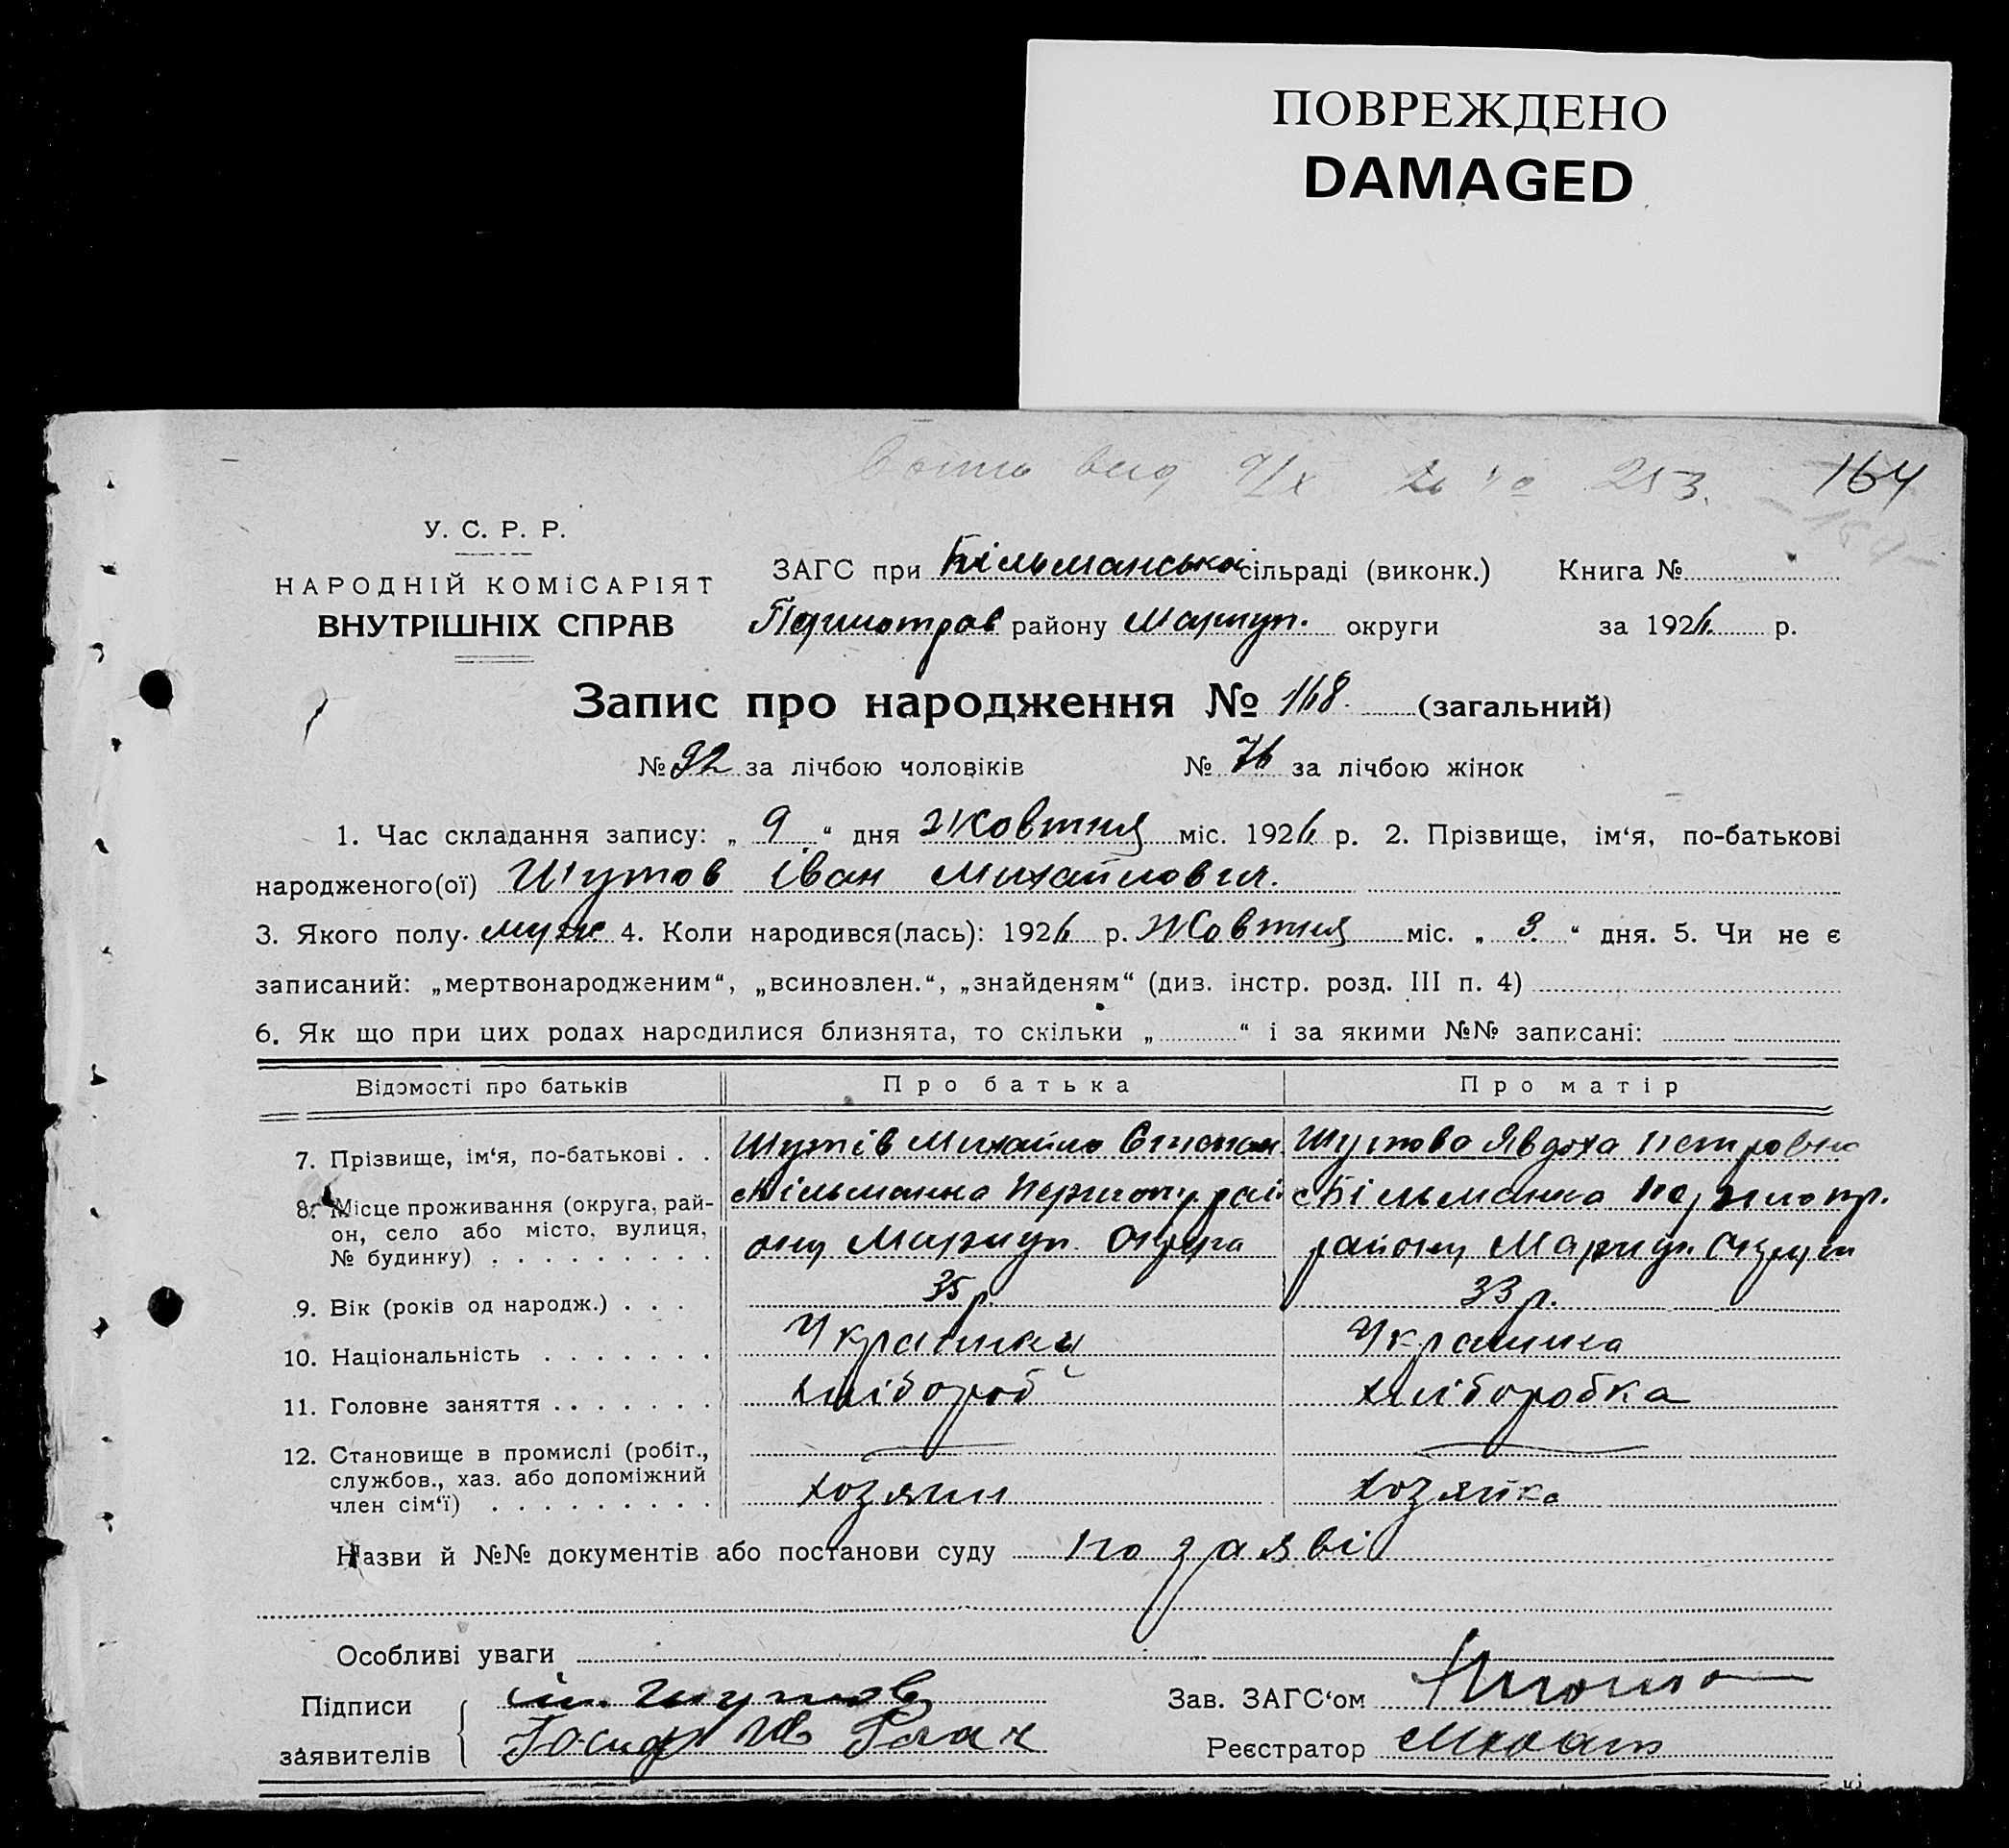 ПОВРЕЖДЕНО
DAMAGED
164
У. С. Р. Р.
НАРОДНІЙ КОМІСАРІЯТ
ВНУТРІШНІХ СПРАВ
ЗАГС при Більманська сільраді (виконк.) Книга №
Першотрав району Маріуп. округи за 1926 р.
Запис про народження № 168. (загальний)
№ 92 за лічбою чоловіків № 76 за лічбою жінок
1. Час складання запису: „ 9 “ дня Жовтня міс. 1926 р. 2. Прізвище, ім‘я, по-батькові
народженого(ої) Шутов Іван Михайлович.
3. Якого полу муж 4. Коли народився(лась): 1926 р. Жовтня міс. „ 3 “ дня. 5. Чи не є
записаний: „мертвонародженим“, „всиновлен.“, „знайденям“ (див. інстр. розд. III п. 4)
6. Як що при цих родах народилися близнята, то скільки „ “ і за якими №№ записані:
Відомості про батьків Про батька Про матір
7. Прізвище, ім‘я, по-батькові . . Шутів Михайло Степан. Шутова Явдоха Петровна
8. Місце проживання (округа, рай- Більманка Першотр. рай Більманка
он, село або місто, вулиця, ону Маріуп. Округа району Маріуп. Округи
№ будинку) . . . . . . . . .
9. Вік (років од народж.) . . . 35 р. 33 р.
10. Національність . . . . . . . Украинка
11. Головне заняття . . . . . . . хлібороб хлiборобка
12. Становище в промислі (робіт.,
службов., хаз. або допоміжний хозяин хозяйка
член сім‘ї) . . . . . . . . .
Назви й №№ документів або постанови суду по заяві
Особливі уваги
Підписи Шутов Зав. ЗАГС‘ом
заявителів Реєстратор